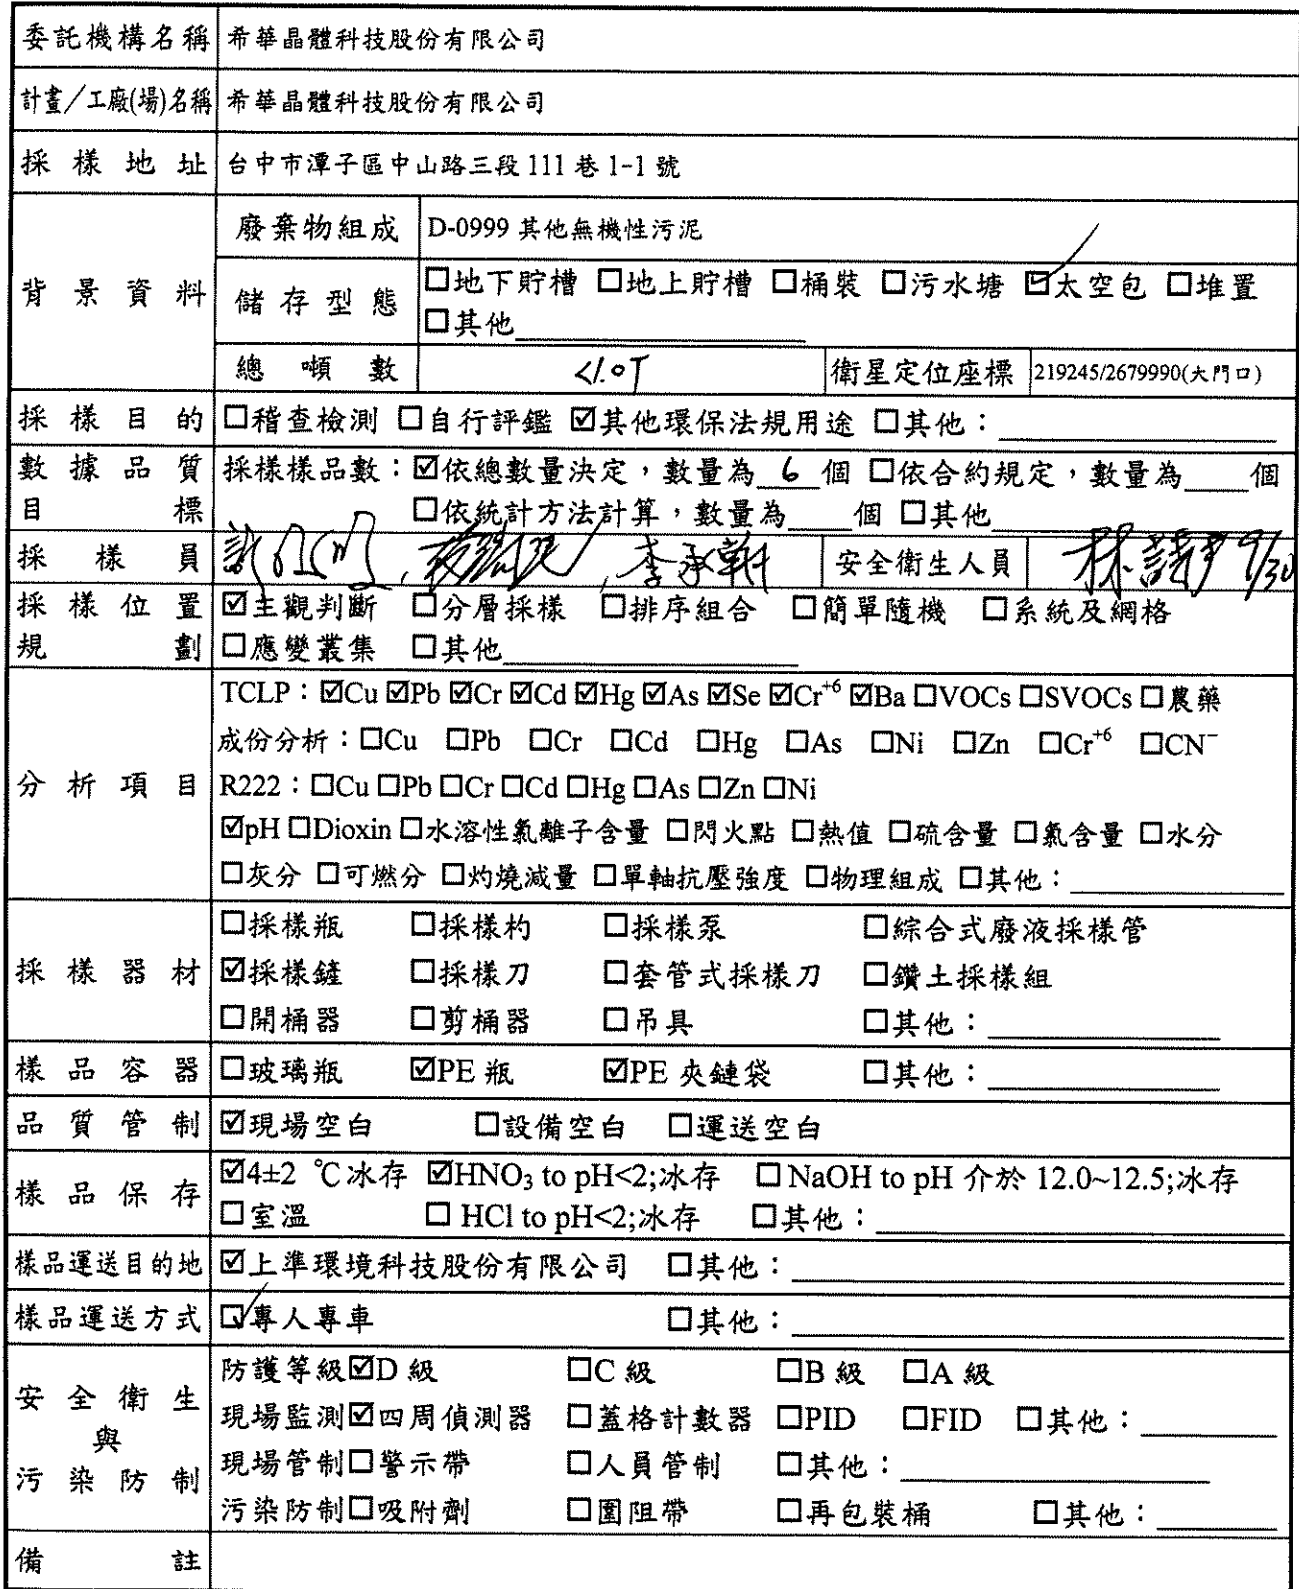 委託機構名稱 希華晶體科技股份有限公司
計畫／工廠(場)名稱 希華晶體科技股份有限公司
採樣地址 台中市潭子區中山路三段 111 巷 1-1 號
背景資料
廢棄物組成 D-0999 其他無機性污泥
儲存型態 □地下貯槽 □地上貯槽 □桶裝 □污水塘 ☑太空包 □堆置
□其他
總噸數 <1.0T 衛星定位座標 219245/2679990(大門口)
採樣目的 □稽查檢測 □自行評鑑 ☑其他環保法規用途 □其他：
數據品質目標 採樣樣品數：☑依總數量決定，數量為 6 個 □依合約規定，數量為 個
□依統計方法計算，數量為 個 □其他
採樣員 李承軒 安全衛生人員 9/30
採樣位置規劃 ☑主觀判斷 □分層採樣 □排序組合 □簡單隨機 □系統及網格
□應變叢集 □其他
分析項目
TCLP：☑Cu ☑Pb ☑Cr ☑Cd ☑Hg ☑As ☑Se ☑Cr⁺⁶ ☑Ba □VOCs □SVOCs □農藥
成份分析：□Cu □Pb □Cr □Cd □Hg □As □Ni □Zn □Cr⁺⁶ □CN⁻
R222：□Cu □Pb □Cr □Cd □Hg □As □Zn □Ni
☑pH □Dioxin □水溶性氯離子含量 □閃火點 □熱值 □硫含量 □氯含量 □水分
□灰分 □可燃分 □灼燒減量 □單軸抗壓強度 □物理組成 □其他：
採樣器材
□採樣瓶 □採樣杓 □採樣泵 □綜合式廢液採樣管
☑採樣鏟 □採樣刀 □套管式採樣刀 □鑽土採樣組
□開桶器 □剪桶器 □吊具 □其他：
樣品容器 □玻璃瓶 ☑PE 瓶 ☑PE 夾鏈袋 □其他：
品質管制 ☑現場空白 □設備空白 □運送空白
樣品保存 ☑4±2 ℃冰存 ☑HNO₃ to pH<2;冰存 □NaOH to pH 介於 12.0~12.5;冰存
□室溫 □ HCl to pH<2;冰存 □其他：
樣品運送目的地 ☑上準環境科技股份有限公司 □其他：
樣品運送方式 ☑專人專車 □其他：
安全衛生與污染防制
防護等級☑D 級 □C 級 □B 級 □A 級
現場監測☑四周偵測器 □蓋格計數器 □PID □FID □其他：
現場管制□警示帶 □人員管制 □其他：
污染防制□吸附劑 □圍阻帶 □再包裝桶 □其他：
備註